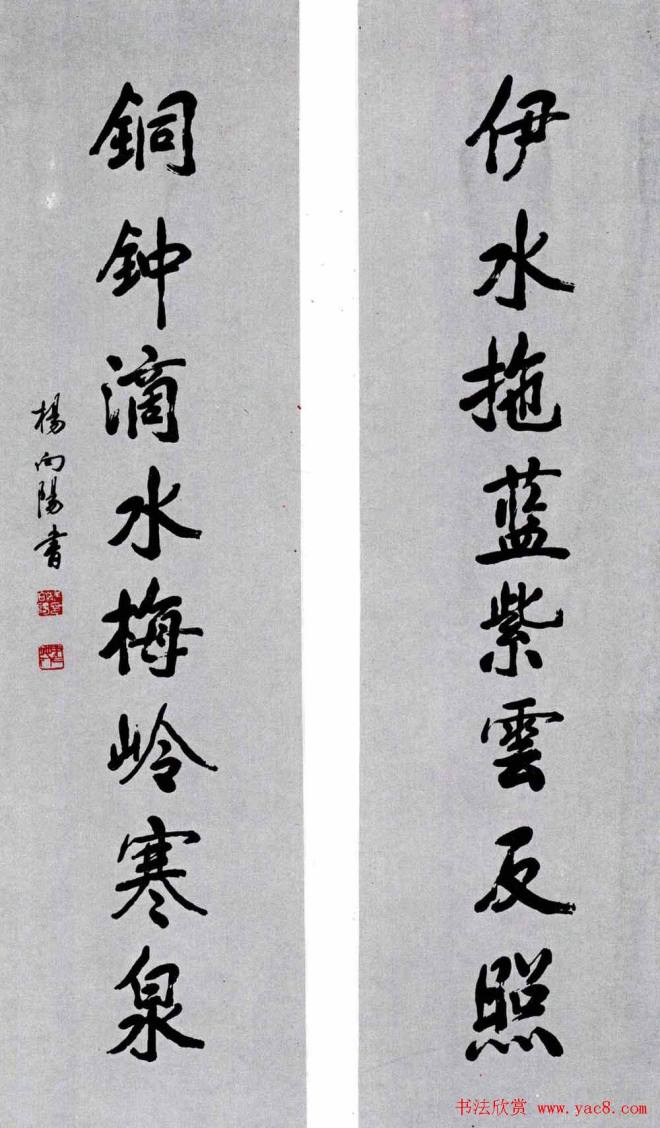 伊水拖蓝紫雲反照
銅钟滴水梅岭寒泉
楊向陽書
书法欣赏 www.yac8.com